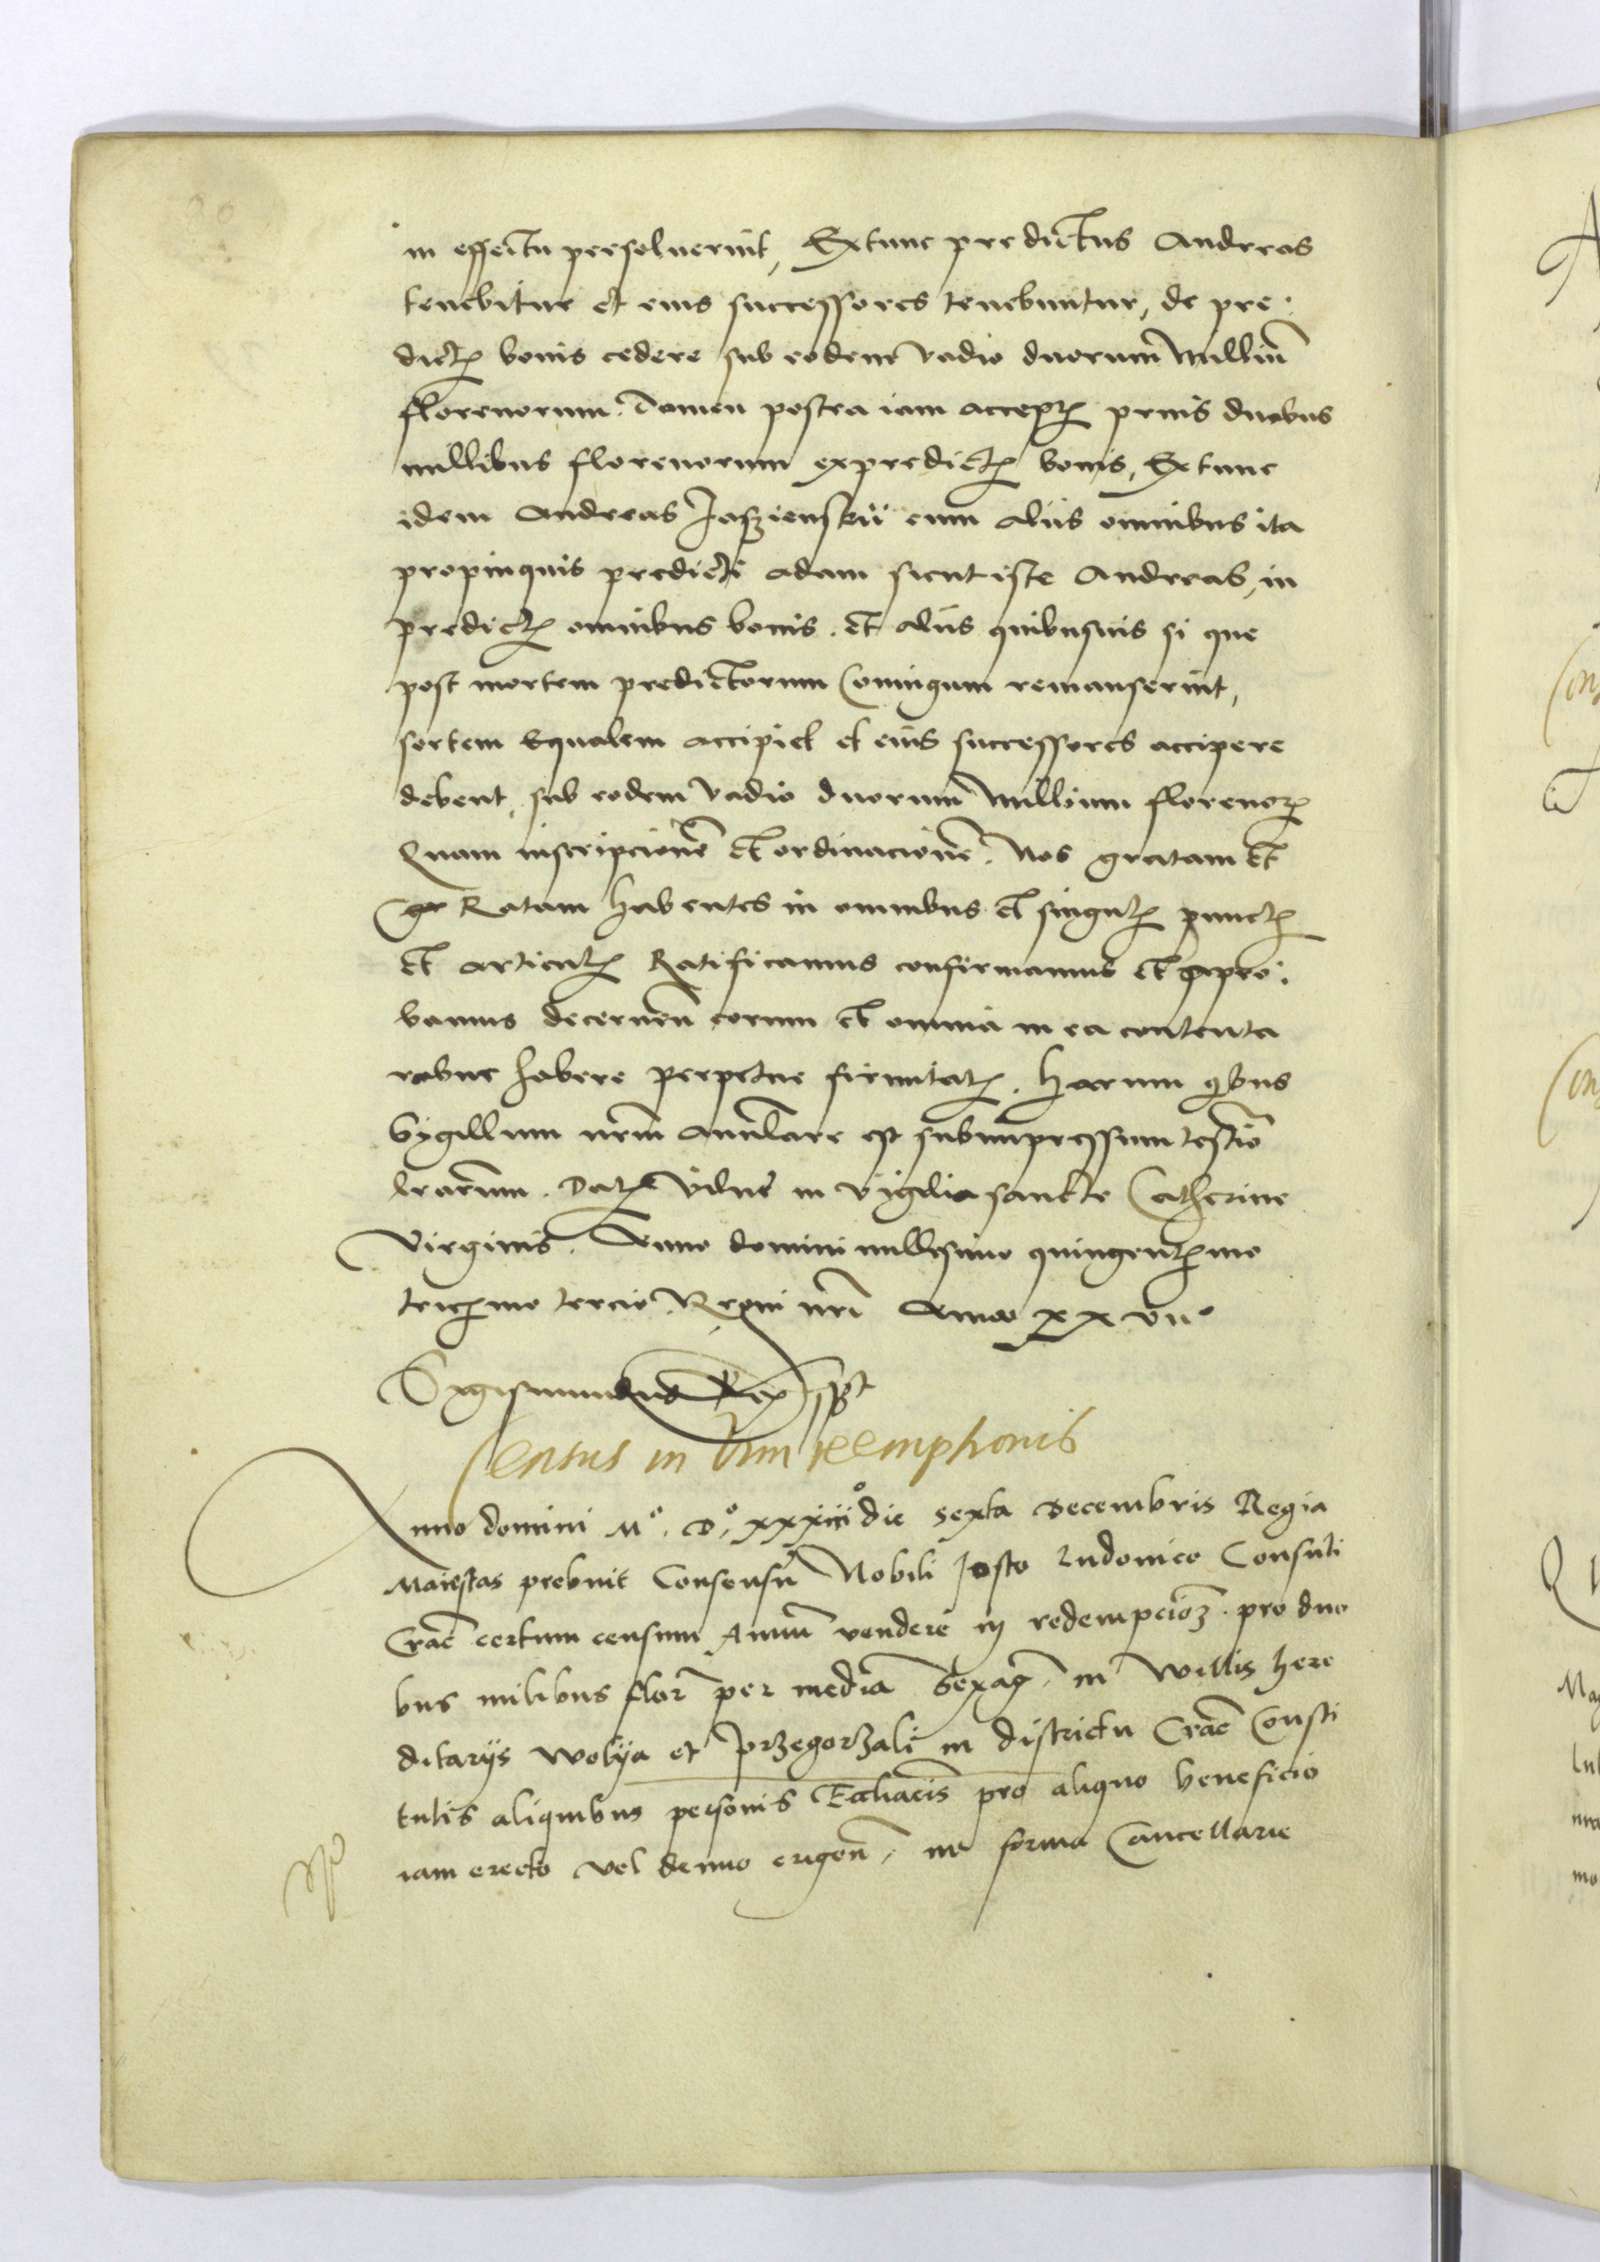 in effectu persoluerint, Extunc predictus Andreas
tenebitur et eius successores tenebuntur, de pre:
dictꝫ bonis cedere sub eodem vadio duorum milliū
florenorum. Tamen postea iam acceptꝫ prius duobus
millibus florenorum ex predictꝫ bonis, Extunc
idem Andreas Jaszienskij cum aliis omnibus ita
propinquis predicti Adam sicut iste Andreas, in
predictꝫ omnibus bonis. et aliis quibusuis si que
post mortem predictorum Coniugum remanserint,
sortem equalem accipiet et eius successores accipere
debent, sub eodem vadio duorum millium florenoꝝ
Quam inscripcionē et ordinacionē. Nos gratam et
Ratam habentes in omnibus et singulꝫ punctꝫ
et articulꝫ Ratificamus confirmamus et appro:
bamus decernen̄ eorum et omnia in ea contenta
robur habere perpetue firmitatꝫ. Harum qbus
Sygillum nr̄m annulare est subimpressum testīo
lrarum. Datꝫ Vilne in vigilia sancte Catherine
Virginis. Anno domini millesimo quingentꝫimo
tricꝫimo tercio, Regni nrī Anno xxvii°
Sygismundus Rex sspt
Census in vim reempcionis
Anno domini M°. D°. xxxiii° die sexta Decembris Regia
Maiestas prebuit Consensū Nobili Josto Ludouico Consuli
Crac̄ certum censum Annuū vendere in redempcionꝫ. pro duo
bus milibus flor̄ per mediā Sexaḡ, in Willis here
ditarijs Wolya et Przegorzali in districtu Crac̄ Consti
tutis aliquibus personis Eccl̄iac̄is pro aliquo beneficio
iam erecto vel denuo erigen̄, in forma Cancellarie